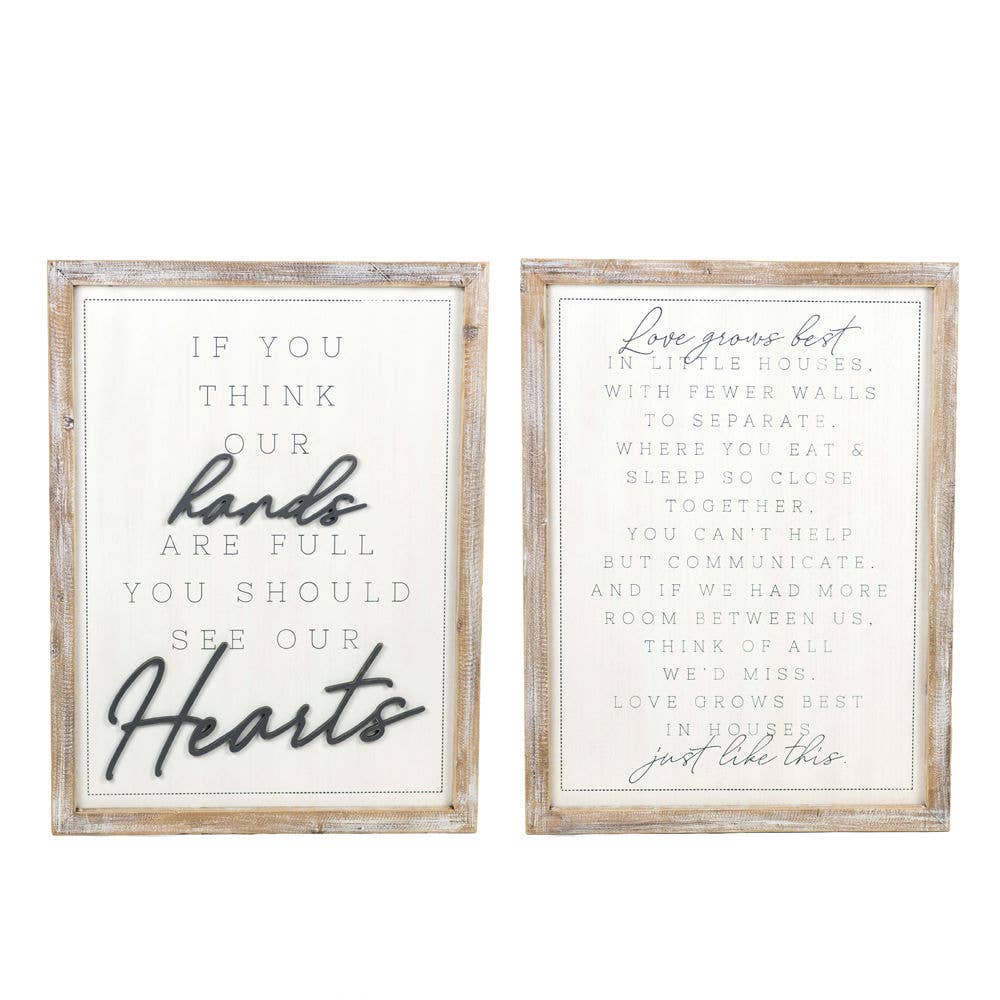 IF YOU
THINK
OUR
hands
ARE FULL
YOU SHOULD
SEE OUR
Hearts
Love grows best
IN LITTLE HOUSES,
WITH FEWER WALLS
TO SEPARATE.
WHERE YOU EAT &
SLEEP SO CLOSE
TOGETHER,
YOU CAN'T HELP
BUT COMMUNICATE.
AND IF WE HAD MORE
ROOM BETWEEN US,
THINK OF ALL
WE'D MISS.
LOVE GROWS BEST
IN HOUSES
just like this.